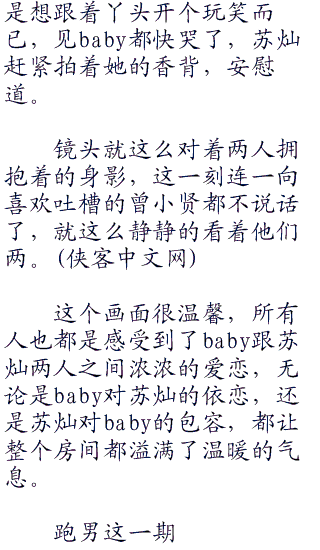 是想跟着丫头开个玩笑而
已，见baby都快哭了，苏灿
赶紧拍着她的香背，安慰
道。
镜头就这么对着两人拥
抱着的身影，这一刻连一向
喜欢吐槽的曾小贤都不说话
了，就这么静静的看着他们
两。(侠客中文网)
这个画面很温馨，所有
人也都是感受到了baby跟苏
灿两人之间浓浓的爱恋，无
论是baby对苏灿的依恋，还
是苏灿对baby的包容，都让
整个房间都溢满了温暖的气
息。
跑男这一期